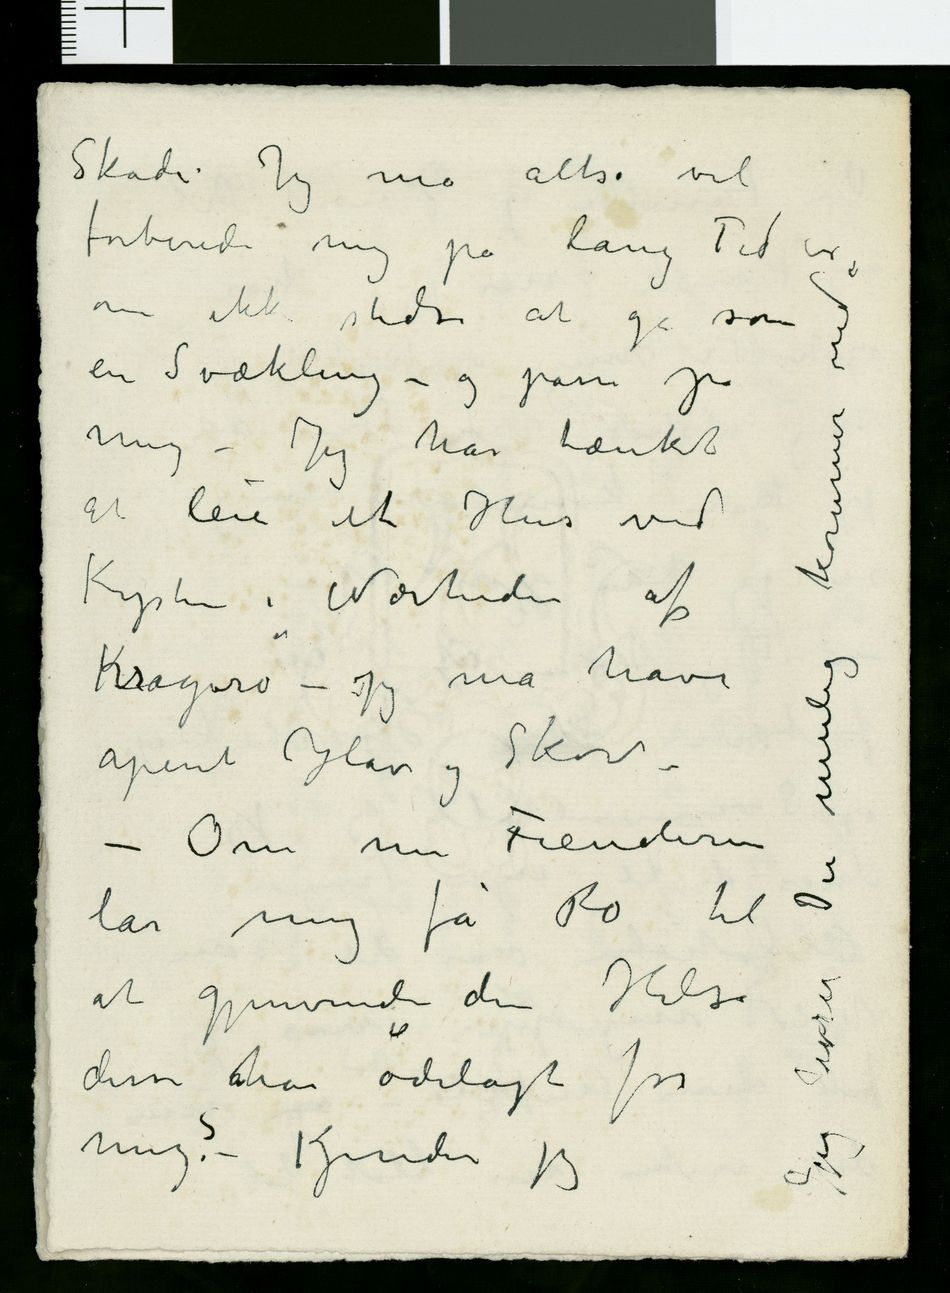 Skade. Jeg må altså vel
forberede mig på lang Tid
om ikke stedse at gå som
en Svækling – og passe på
mig – Jeg har tænkt
at leie et Hus ved
Kysten i Nærheden af
Kragerø – jeg må have
åpent Hav og Skov –
– Om nu Fienderne
lar mig få Ro til
at gjenvinde den Helse
disse har ødelagt for
mig? – Kjender jeg
Jeg Du mulig kommer ned